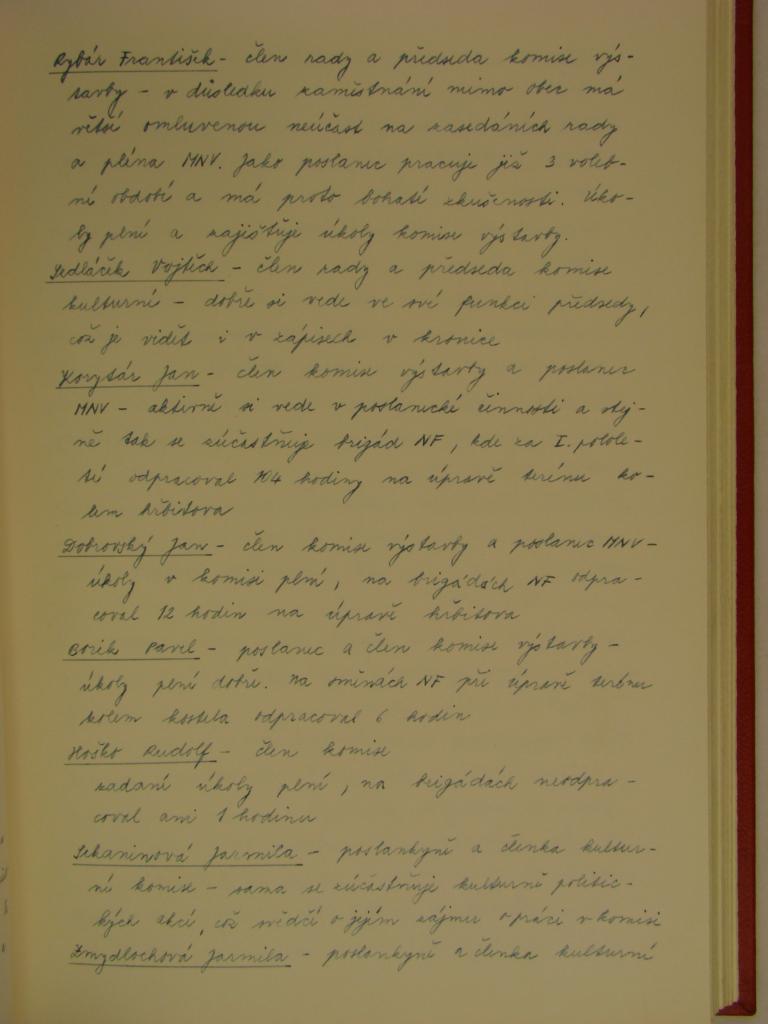 Rybár František - člen rady a předseda komise výs-
tavby - v důsledku zaměstnání mimo obec má
větší omluvenou neúčast na zasedáních rady
a pléna MNV. Jako poslanec pracuje již 3 voleb-
ní období a má proto bohaté zkušenosti. Úko-
ly plní a zajišťuje úkoly komise výstavby.
Sedláček Vojtěch - člen rady a předseda komise
kulturní - dobře si vede ve své funkci předsedy,
což je vidět i v zápisech v kronice
Korytár Jan - člen komise výstavby a poslanec
MNV - aktivně si vede v poslanecké činnosti a stej-
ně tak se zúčastňuje brigád NF, kde za I. polole-
tí odpracoval 104 hodiny na úpravě terénu ko-
lem hřbitova
Dobrovský Jan - člen komise výstavby a poslanec MNV -
úkoly v komisi plní, na brigádách NF odpra-
coval 12 hodin na úpravě hřbitova
Borik Pavel - poslanec a člen komise výstavby -
úkoly plní dobře. Na směnách NF při úpravě terénu
kolem kostela odpracoval 6 hodin
Hoško Rudolf - člen komise
zadané úkoly plní, na brigádách neodpra-
coval ani 1 hodinu
Sekaninová Jarmila - poslankyně a členka kultur-
ní komise - sama se zúčastňuje kulturně politic-
kých akcí, což svědčí o jejím zájmu o práci v komisi
Zmydlochová Jarmila - poslankyně a členka kulturní